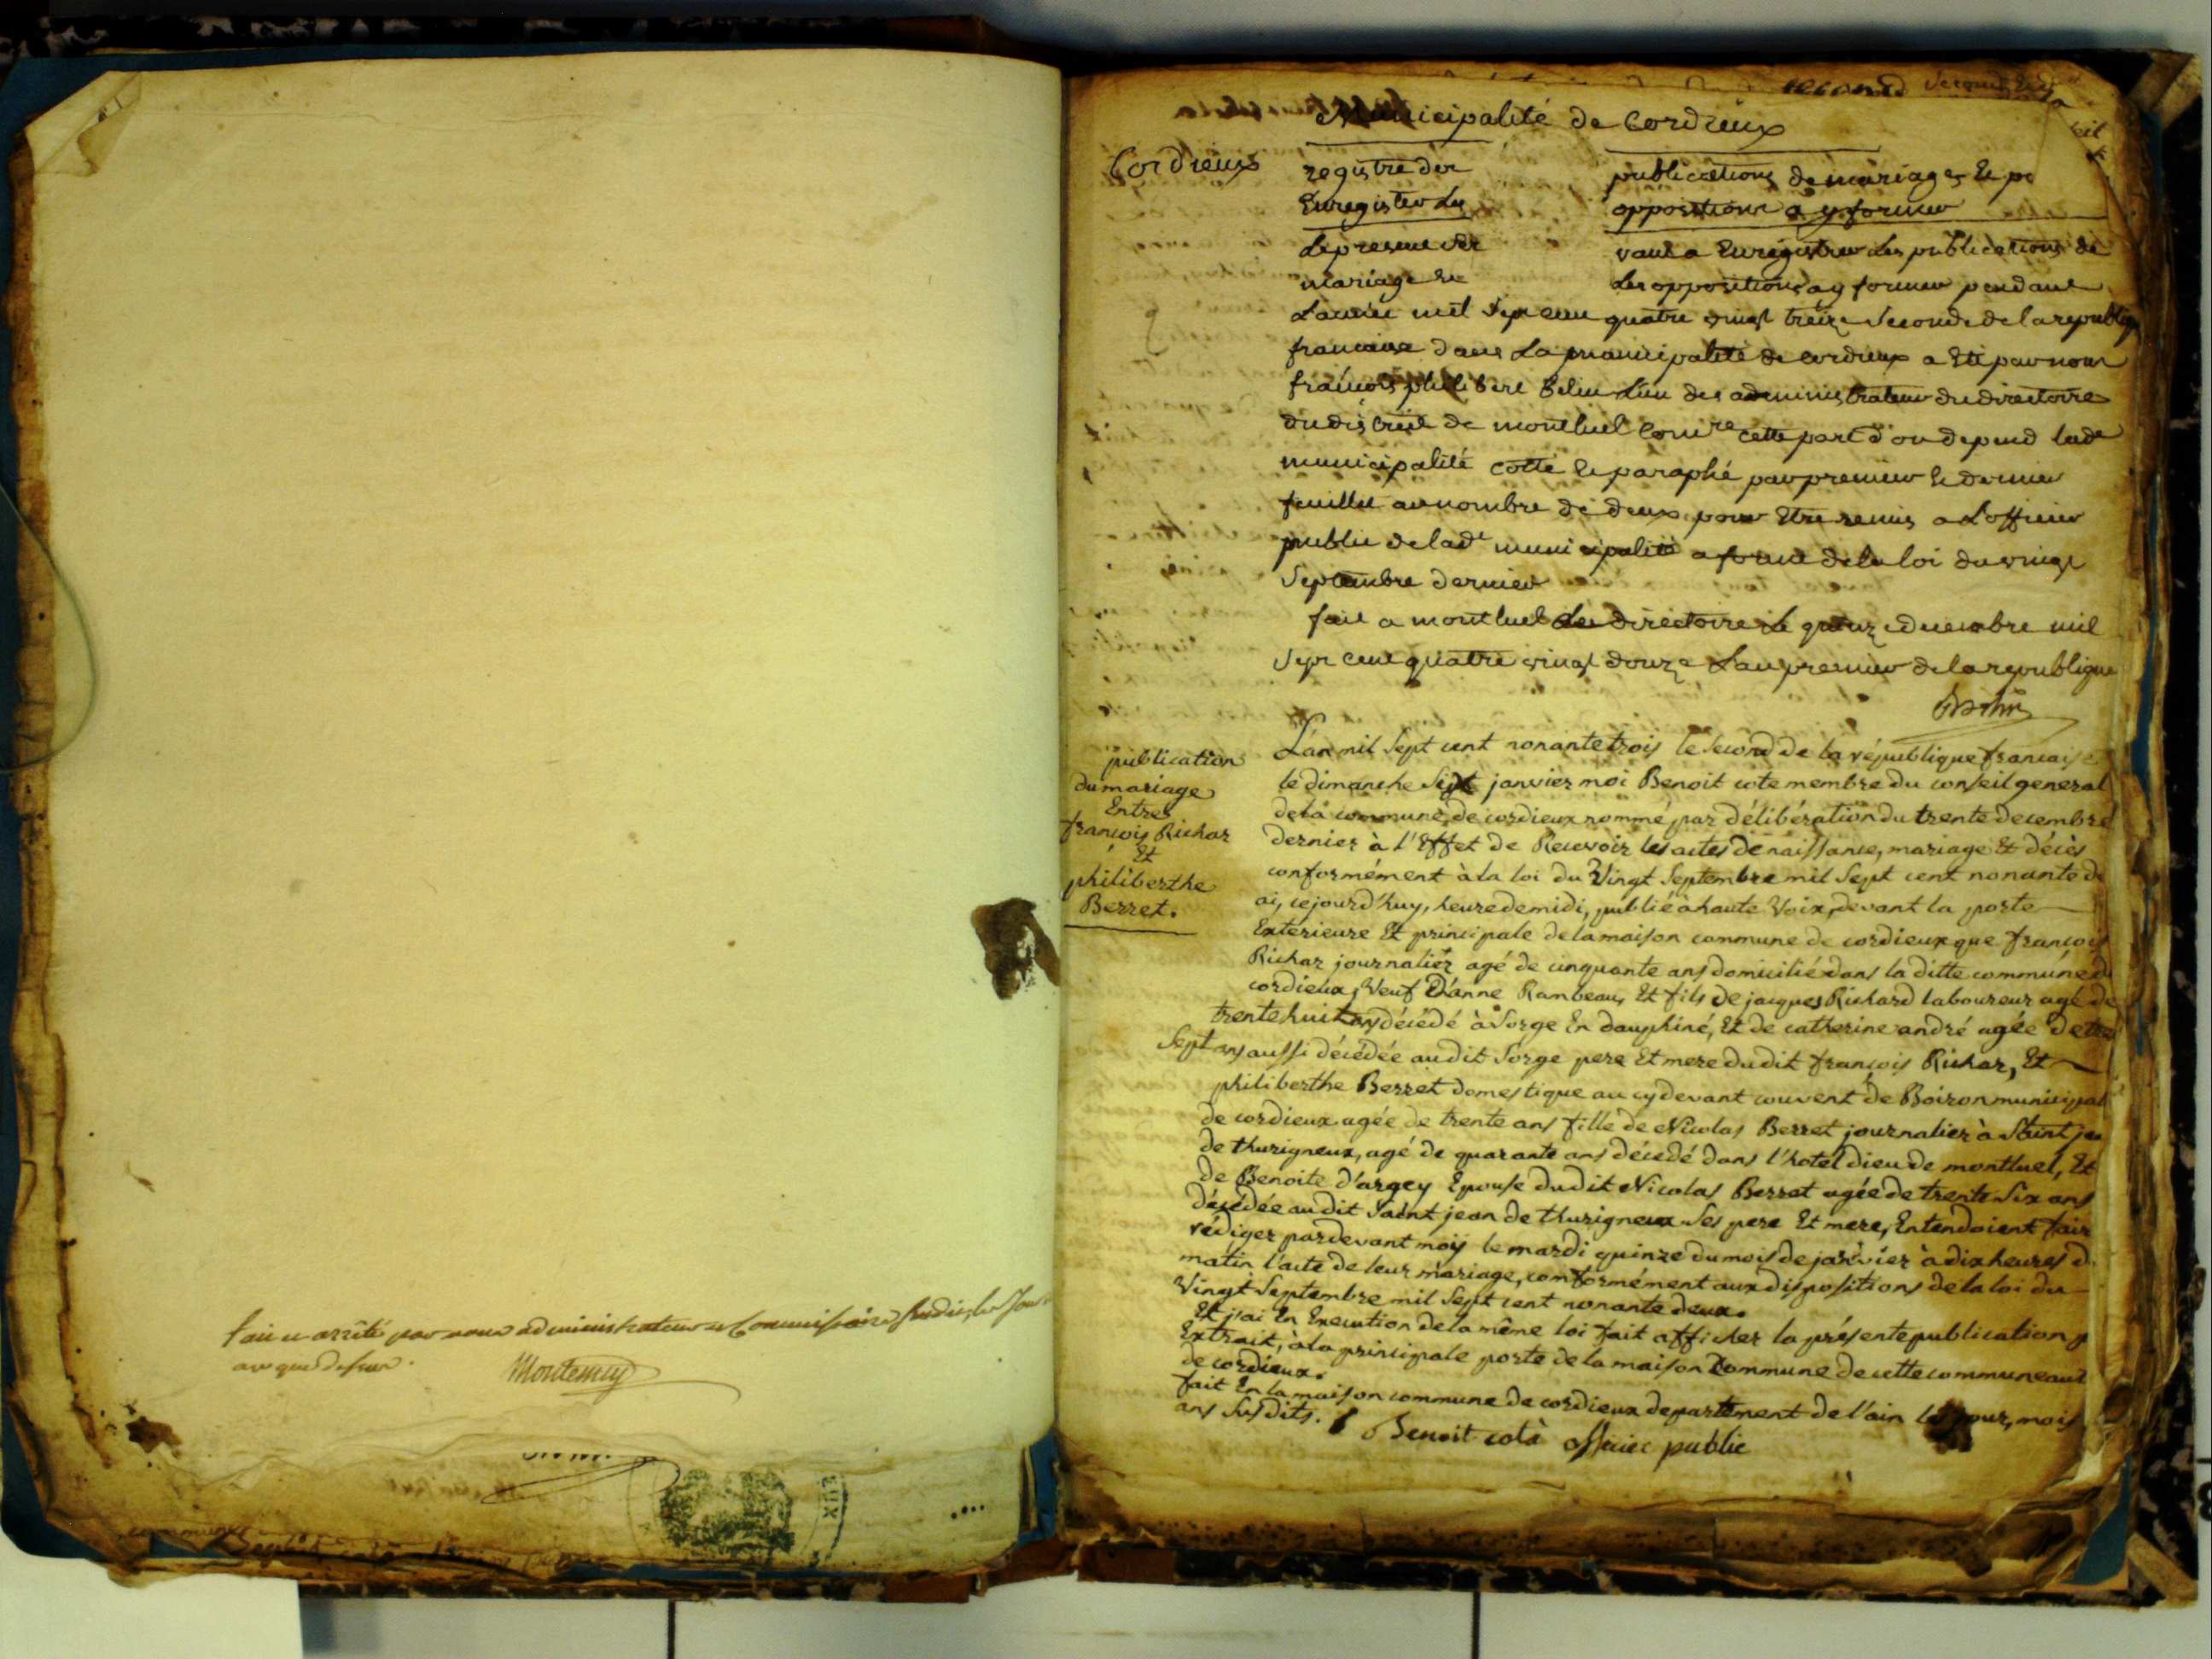 fait et arrêté par nous administrateur et Commissaire susdit, les jour
an que dessus.
Montemuy
EUX
second
Municipalité de Cordieux
Cordieux
registre des publications de mariages et
Enregistrer les oppositions a y former
Le present est vant a Enregistrer les publications de
mariage et les oppositions a y former pendant
L'année mil sept cent quatre vingt treize Seconde de la republique
francaise dans La municipalité de cordieux a été par nous
françois philibert belin L'un des administrateur du directoire
du district de montluel Comre cette part d'ou depend lade
municipalité cotté et paraphé par premier et dernier
feuillet au nombre de deux, pour être remis a L'officier
public de lade municipalité a forme de la loi du vingt
Septembre dernier
fait a montluel directoire le quinze decembre mil
Sept cent quatre vingt douze L'an premier de la republique
publication
du mariage
Entre
françois Richar
Et
philiberthe
Berret.
L'an mil Sept cent nonante trois le Second de la république francaise
le dimanche Sixt janvier moi Benoit cote membre du conseil general
de la commune de cordieux nommé par délibération du trente decembre
dernier à l'Effet de Recevoir les actes de naissance, mariage Et décès
conformément à la loi du Vingt Septembre mil Sept cent nonante d
ai, cejourd'huy, heure de midi, publié à haute Voix, devant la porte
Exterieure Et principale de la maison commune de cordieux que françois
Richar journalier agé de cinquante ans domicilié dans la ditte commune d
cordieux, Veuf D'anne Rambeau, Et fils de jacques Richard laboureur agé de
trente huit ans décédé à Sorge En dauphiné, Et de catherine andré agée de tre
Sept ans aussi décédée audit Sorge pere Et mere dudit françois Richar, Et
philiberthe Berret domestique au cydevant couvent de Boiron municipal
de cordieux agée de trente ans fille de Nicolas Berret journalier à Saint jea
de thurigneux, agé de quarante ans décédé dans l'hotel dieu de montluel, Et
de Benoite d'argey Epouse dudit Nicolas Berret agée de trente Six ans
décédée audit Saint jean de thurigneux Ses pere Et mere, Entendoient fair
rédiger pardevant moij le mardi quinze du mois de janvier à dix heures d
matin l'acte de leur mariage, conformément aux dispositions de la loi du
Vingt Septembre mil Sept cent nonante deux.
Et j'ai En Execution de la même loi fait afficher la présente publication p
Extrait, à la principale porte de la maison Commune de cette commune audit
de cordieux.
fait En la maison commune de cordieux departement de l'ain les jour, mois
ans Susdits. Benoit cote officier public